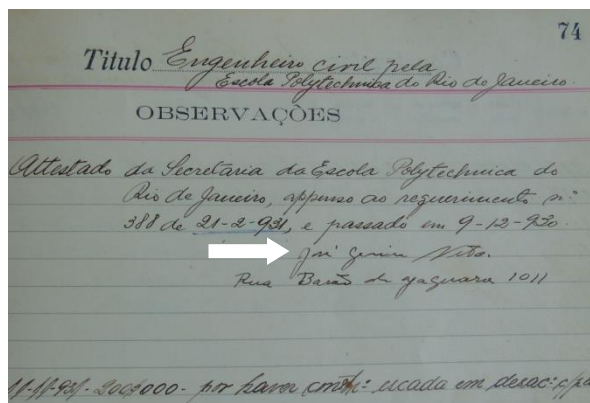 74
Titulo Engenheiro civil pela
Escola Polytechnica do Rio de Janeiro.
OBSERVAÇÕES
Attestado da Secretaria da Escola Polytechnica do
Rio de Janeiro, appenso ao requerimento n.º
388 de 21-2-931, e passado em 9-12-930.
José
Rua Barão de Jaguara 1011
por haver em desac: c/